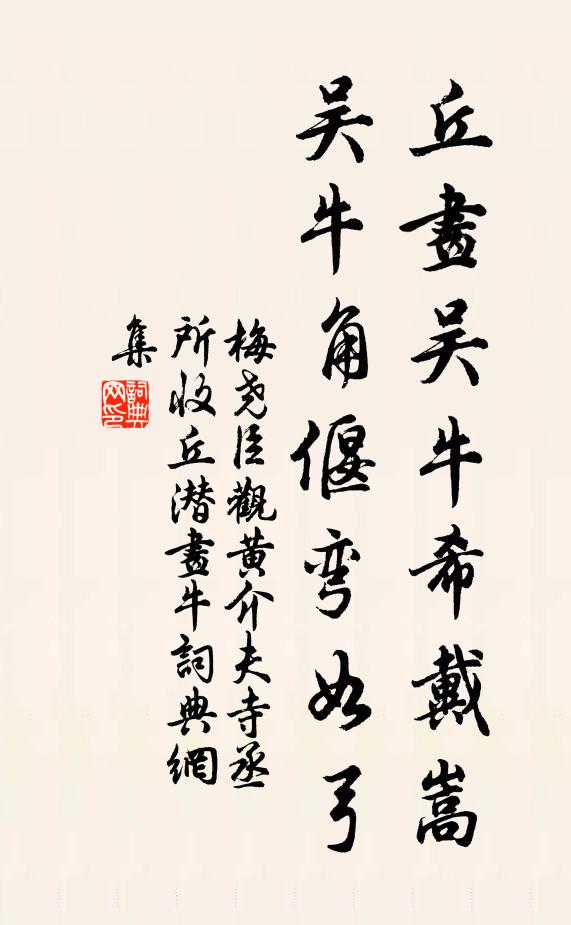 丘畫吴牛希戴嵩
吴牛角偃弯如弓
梅尧臣觀黄介夫寺丞
所收丘潜畫牛詞典網
集
詞典网印